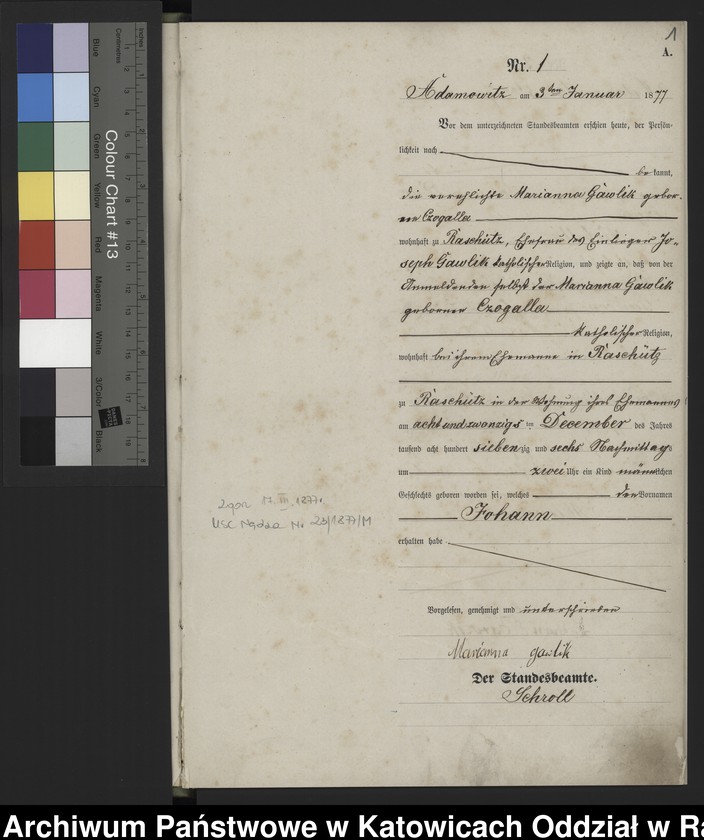 1
A.
Nr. 1
Adamowitz am 3ten Januar 1877
Vor dem unterzeichneten Standesbeamten erschien heute, der Persön-
lichkeit nach
be kannt,
die verehlichte Marianna Gawlik gebor-
ene Czogalla
wohnhaft zu Raschütz, Ehefrau des Einlieger Jo-
seph Gawlik katholischer Religion, und zeigte an, daß von der
Anmeldenden selbst der Marianna Gawlik
geborner Czogalla
katholischer Religion,
wohnhaft bei ihrem Ehemanne in Raschütz
zu Raschütz in der Wohnung ihres Ehemannes
am achtundzwanzigsten December des Jahres
tausend acht hundert siebenzig und sechs Nachmittags
um zwei Uhr ein Kind männlichen
Geschlechts geboren worden sei, welches den Vornamen
Johann
erhalten habe.
Vorgelesen, genehmigt und unterschrieben
Marianna gawlik
Der Standesbeamte.
Schroll
zgon 17. III 1877r.
USC Nędza Nr 23/1877/M
Colour Chart #13
Blue
Cyan
Green
Yellow
Red
Magenta
White
3/Color
Black
Centimetres
Inches
Archiwum Państwowe w Katowicach Oddział w Ra